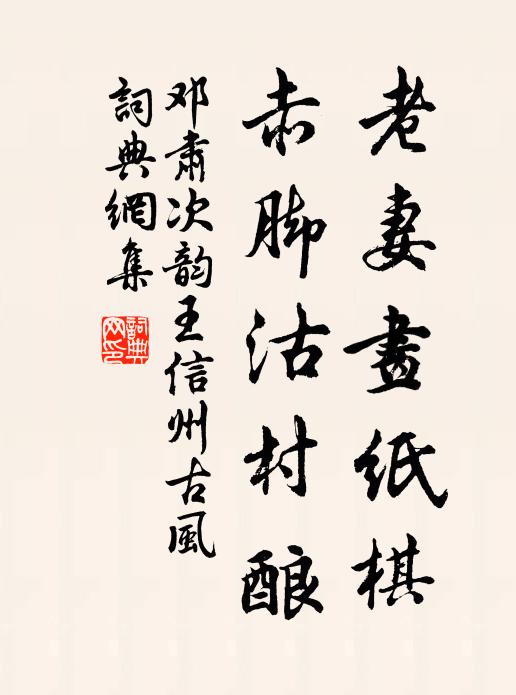 老妻畫紙棋
赤脚沽村酿
邓肅次韵王信州古風
詞典網集
詞典網印